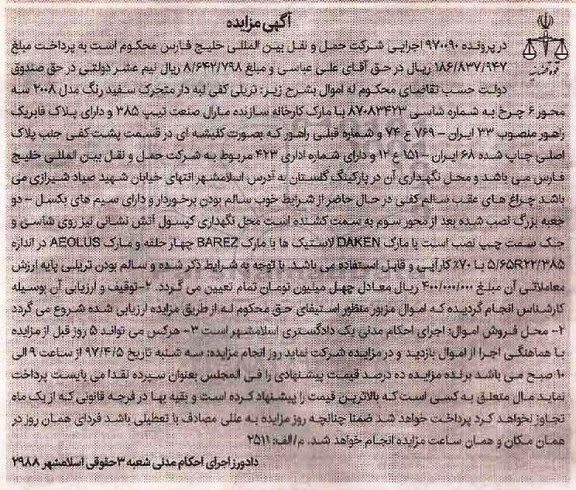 آگهی مزایده
در پرونده ۹۷۰۰۹۰ اجرایی شرکت حمل و نقل بین المللی خلیج فارس محکوم است به پرداخت مبلغ
۱۸۶/۸۳۷/۹۴۷ ریال در حق آقای علی عباسی و مبلغ ۸/۶۴۲/۷۹۸ ریال نیم عشر دولتی در حق صندوق
دولت حسب تقاضای محکوم له اموال بشرح زیر: تریلی کفی لبه دار متحرک سفید رنگ مدل ۲۰۰۸ سه
محور ۶ چرخ به شماره شاسی ۸۷۰۸۳۴۲۳ با مارک کارخانه سازنده مارال صنعت تیپ ۳۸۵ و دارای پلاک فابریک
راهور منصوب ۳۳ ایران – ۷۶۹ ع ۷۴ و شماره قبلی راهور که بصورت کلیشه ای در قسمت پشت کفی جنب پلاک
اصلی چاپ شده ۶۸ ایران – ۱۵۱ ع ۱۲ و دارای شماره اداری ۴۲۳ مربوط به شرکت حمل و نقل بین المللی خلیج
فارس می باشد و محل نگهداری آن در پارکینگ گلستان به آدرس اسلامشهر انتهای خیابان شهید صیاد شیرازی می
باشد چراغ های عقب سالم کفی در حال حاضر از شرایط خوب سالم بودن برخوردار و دارای سیم های بکسل – دو
جعبه بزرگ نصب شده بعد از محور سوم به سمت کشنده است محل نگهداری کپسول آتش نشانی نیز روی شاسی و
جک سمت چپ نصب است با مارک DAKEN لاستیک ها با مارک BAREZ چهار حلقه و مارک AEOLUS در اندازه
۵/۶۵R۲۲/۳۸۵ با ۷۰٪ کارآیی و قابل استفاده می باشد. با توجه به شرایط ذکر شده و سالم بودن تریلی پایه ارزش
معاملاتی آن مبلغ ۴۰۰/۰۰۰/۰۰۰ ریال معادل چهل میلیون تومان تمام تعیین می گردد. ۲-توقیف و ارزیابی آن بوسیله
کارشناس انجام گردیده که اموال مزبور منظور استیفای حق محکوم له از طریق مزایده ارزیابی شده شروع می گردد
۲- محل فروش اموال: اجرای احکام مدنی یک دادگستری اسلامشهر است ۳- هرکس می تواند ۵ روز قبل از مزایده
با هماهنگی اجرا از اموال بازدید و در مزایده شرکت نماید روز انجام مزایده: سه شنبه تاریخ ۹۷/۴/۵ از ساعت ۹ الی
۱۰ صبح می باشد برنده مزایده ده درصد قیمت پیشنهادی را فی المجلس بعنوان سپرده نقدا می بایست پرداخت
نماید مال متعلق به کسی است که بالاترین قیمت را پیشنهاد کرده است و بقیه بها در فرجه قانونی که از یک ماه
تجاوز نخواهد کرد پرداخت خواهد شد ضمنا چنانچه روز مزایده به عللی مصادف با تعطیلی باشد فردای همان روز در
همان مکان و همان ساعت مزایده انجام خواهد شد. م/الف: ۲۵۱۱
دادورز اجرای احکام مدنی شعبه ۳ حقوقی اسلامشهر ۲۹۸۸
قوه قضاییه